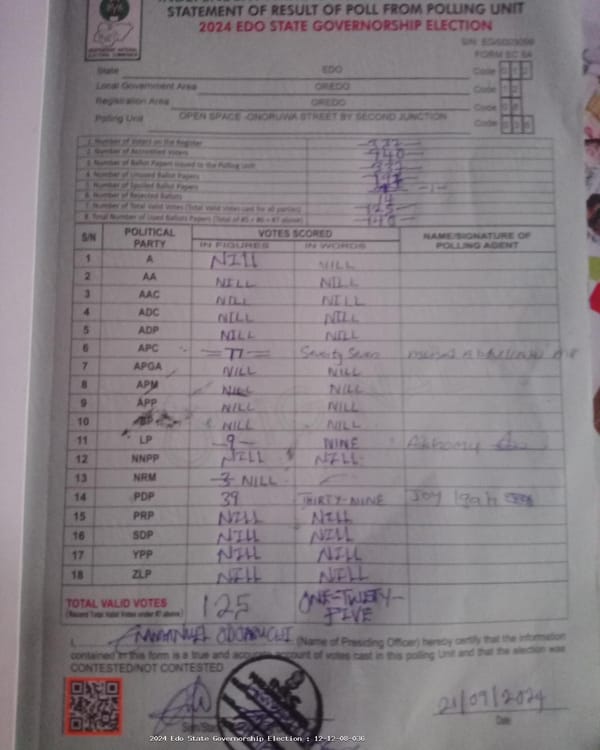 STATEMENT OF RESULT OF POLL FROM POLLING UNIT
2024 EDO STATE GOVERNORSHIP ELECTION
State EDO Code
Local Government Area OREDO Code
Registration Area OREDO Code
Polling Unit OPEN SPACE -ONORUWA STREET BY SECOND JUNCTION Code
1. Number of Voters on the Register
2. Number of Accredited Voters
3. Number of Ballot Papers Issued to the Polling Unit
4. Number of Unused Ballot Papers
5. Number of Spoiled Ballot Papers -1-
6. Number of Rejected Ballots 14
7. Number of Total Valid Votes (Total Valid Votes cast for all parties) 125
8. Total Number of Used Ballots Papers (Total of #5 + #6 + #7 above) 140
S/N POLITICAL PARTY VOTES SCORED NAME/SIGNATURE OF POLLING AGENT
IN FIGURES IN WORDS
1 A NILL NILL
2 AA NILL NILL
3 AAC NILL NILL
4 ADC NILL NILL
5 ADP NILL NILL
6 APC =77= Seventy Seven
7 APGA NILL NILL
8 APM NILL NILL
9 APP NILL NILL
10 BP NILL NILL
11 LP -9- NINE
12 NNPP NILL NILL
13 NRM -3 NILL
14 PDP 39 THIRTY-NINE JOY Igah
15 PRP NILL NILL
16 SDP NILL NILL
17 YPP NILL NILL
18 ZLP NILL NILL
TOTAL VALID VOTES 125 ONE-TWETY-FIVE
(Record Total Valid Votes under #7 above)
I, EMMANUEL (Name of Presiding Officer) hereby certify that the information
contained in this form is a true and accurate account of votes cast in this polling Unit and that the election was
CONTESTED/NOT CONTESTED
21/09/2024
Date
2024 Edo State Governorship Election : 12-12-08-036